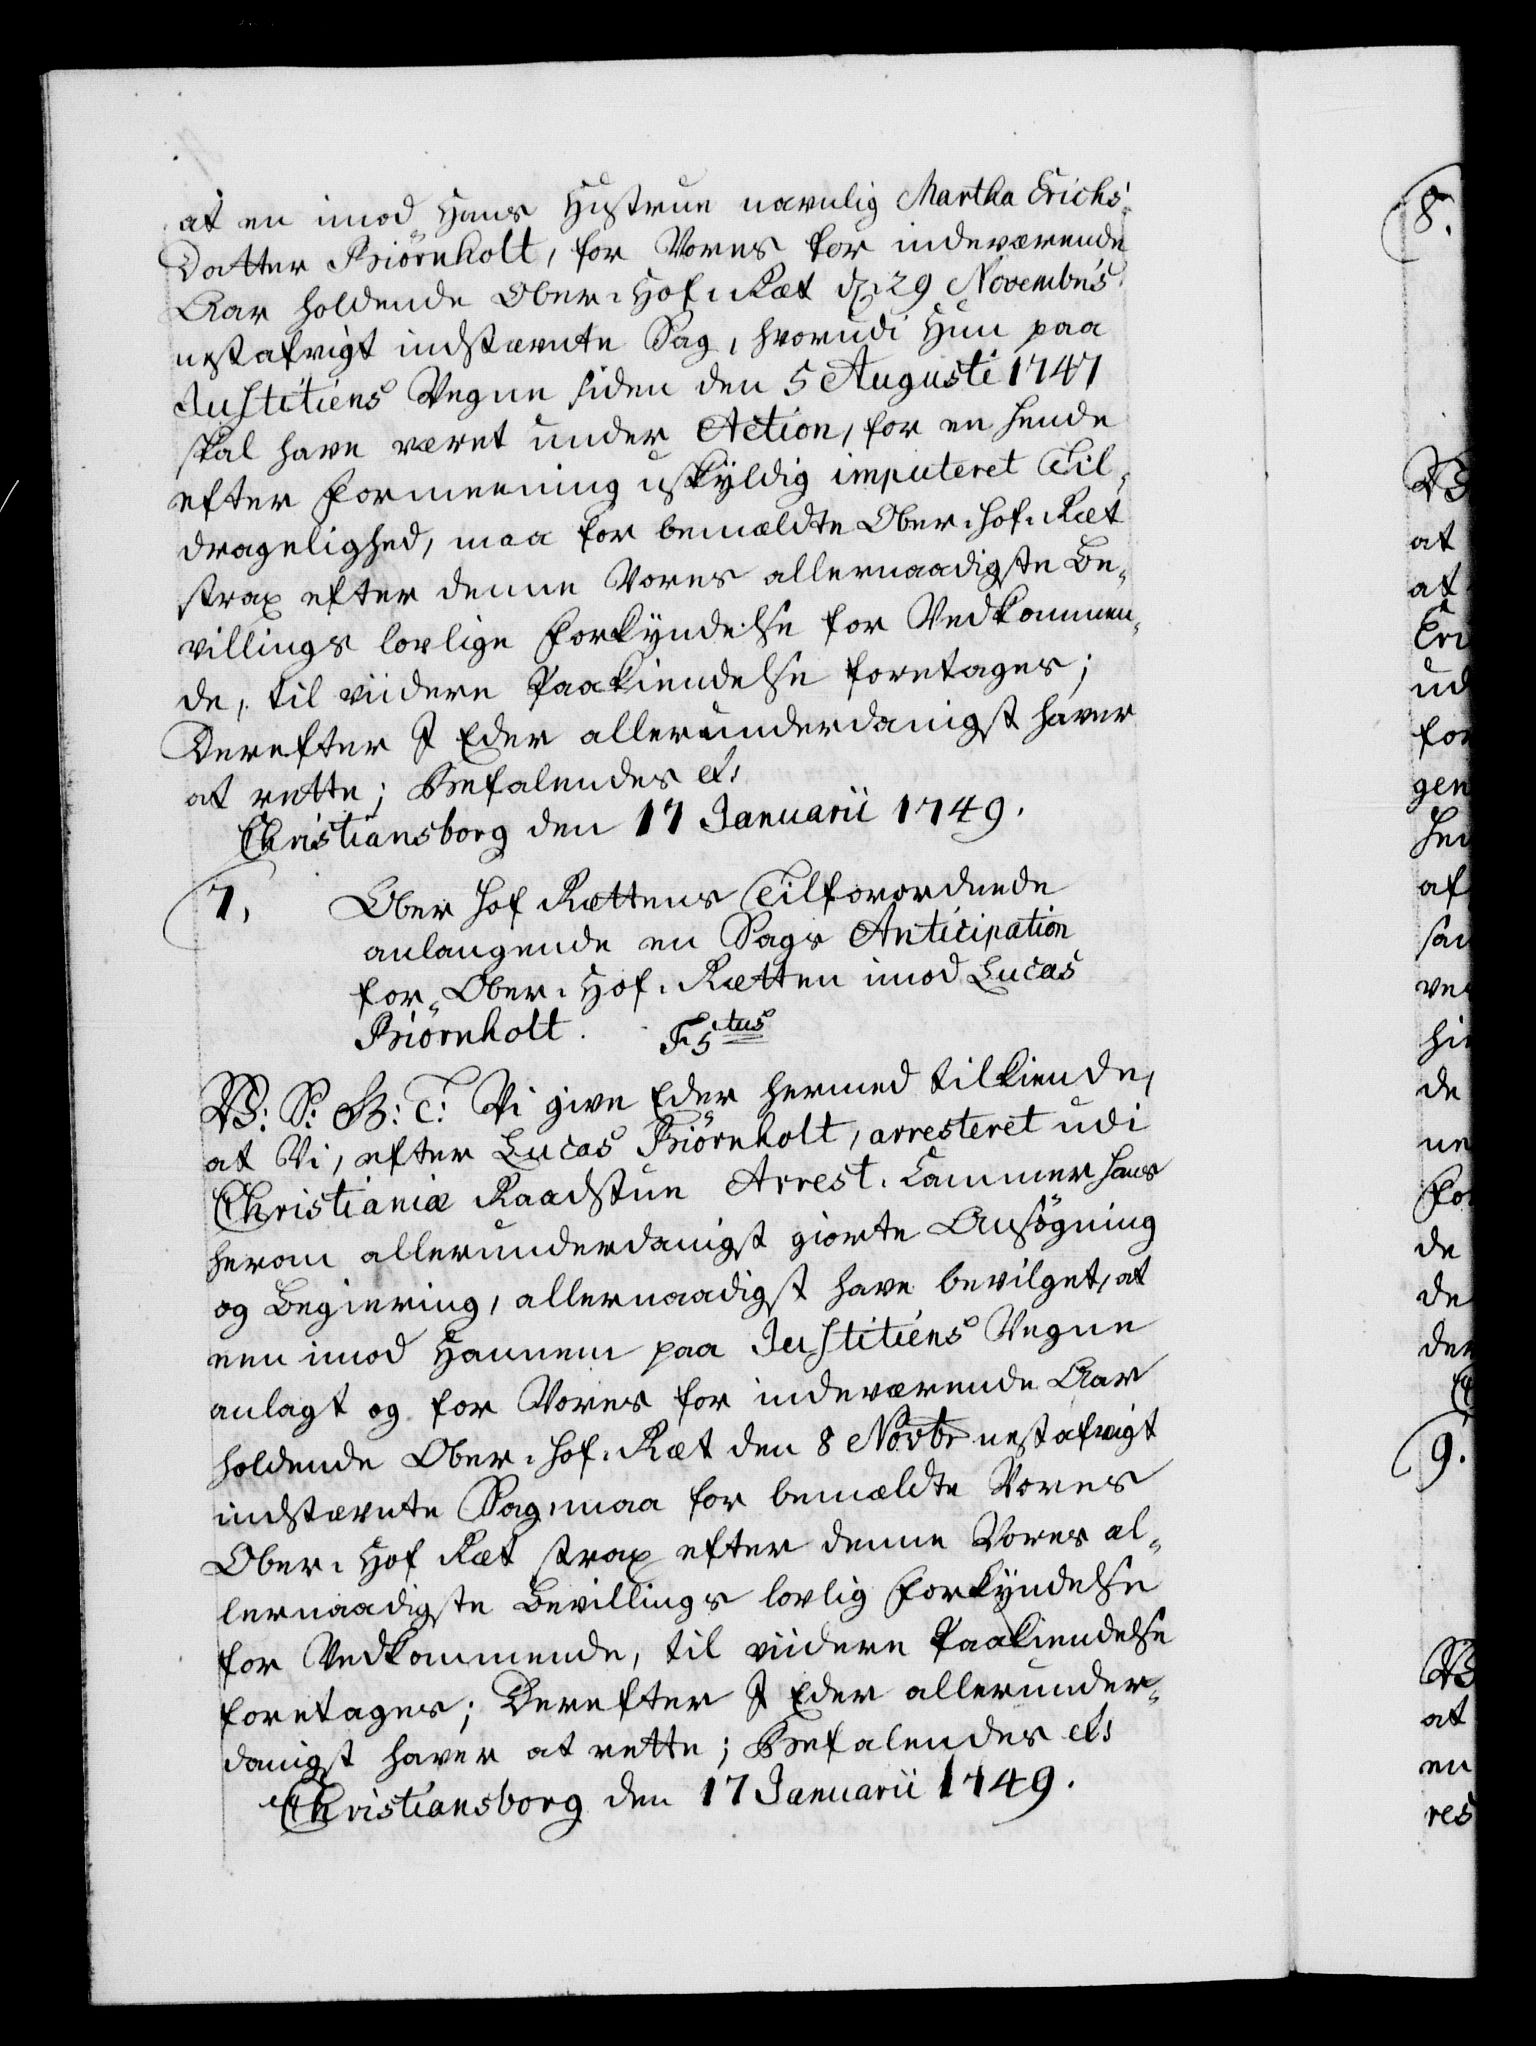 at en imod Hans Hustrue navnlig Martha Erichs¬
Datter Biörnholt, for Vores for indeværende
Aar holdende Ober-Hof-Ræt d. 29 Novembris
nestafvigt indstævnte Sag, hvorudi Hun paa
Justitiens Vegne siden den 5 Augusti 1747
skal have været under Action, for en hende
efter Formeening uskyldig imputeret Til¬
dragelighed, maa for bemældte Ober-Hof-Ræt
strax efter denne Vores allernaadigste Be¬
villings lovlige Forkyndelse for Vedkommen¬
de, til viidere Paakiendelse foretages;
Derefter I Eder allerunderdanigst haver
at rette; Befalendes etc
Christiansborg den 17 Januarii 1749.
7. Ober Hof Rettens Tilforordnede
anlangende en Sags Anticipation
for Ober-Hof-Retten imod Lucas
Biörnholt. F. 5tus
V: S: G: T: Vi give Eder hermed tilkiende,
at Vi, efter Lucas Biörnholt, arresteret udi
Christianiæ Raadstue Arrest-Cammer hans
herom allerunderdanigst giorte Ansögning
og Begiering, allernaadigst have bevilget, at
een imod Hannem paa Justitiens Vegne
anlagt og for Vores for indeværende Aar
holdende Ober-Hof-Ræt den 8 Novbr nestafvigt
indstævnte Sag, maa for bemældte Vores
Ober-Hof Ræt strax efter denne Vores al¬
lernaadigste Bevillings lovlig Forkyndelse
for Vedkommende, til viidere Paakiendelse
foretages; Derefter I Eder allerunder¬
danigst haver at rette; Befalendes etc
Christiansborg den 17 Januarii 1749.
8.
at
at
Eri
ud
for
gen
af
ve
de
de
de
9.
at
en
res